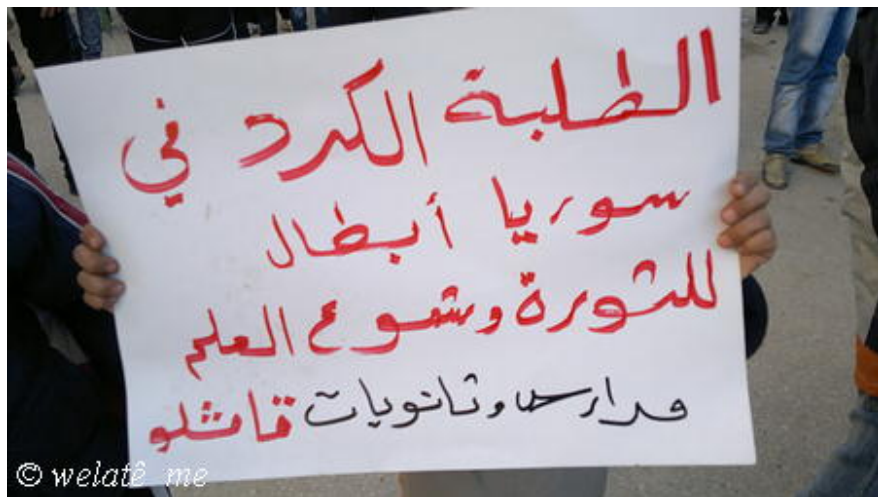 الطلبة الكرد في
سوريا أبطال
للثورة وشموع العلم
مدارس وثانويات قامشلو
© welatê me